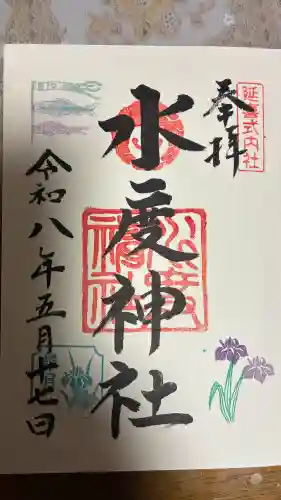 奉拝
延喜式内社
水度神社
水度神社
令和八年五月廿七日